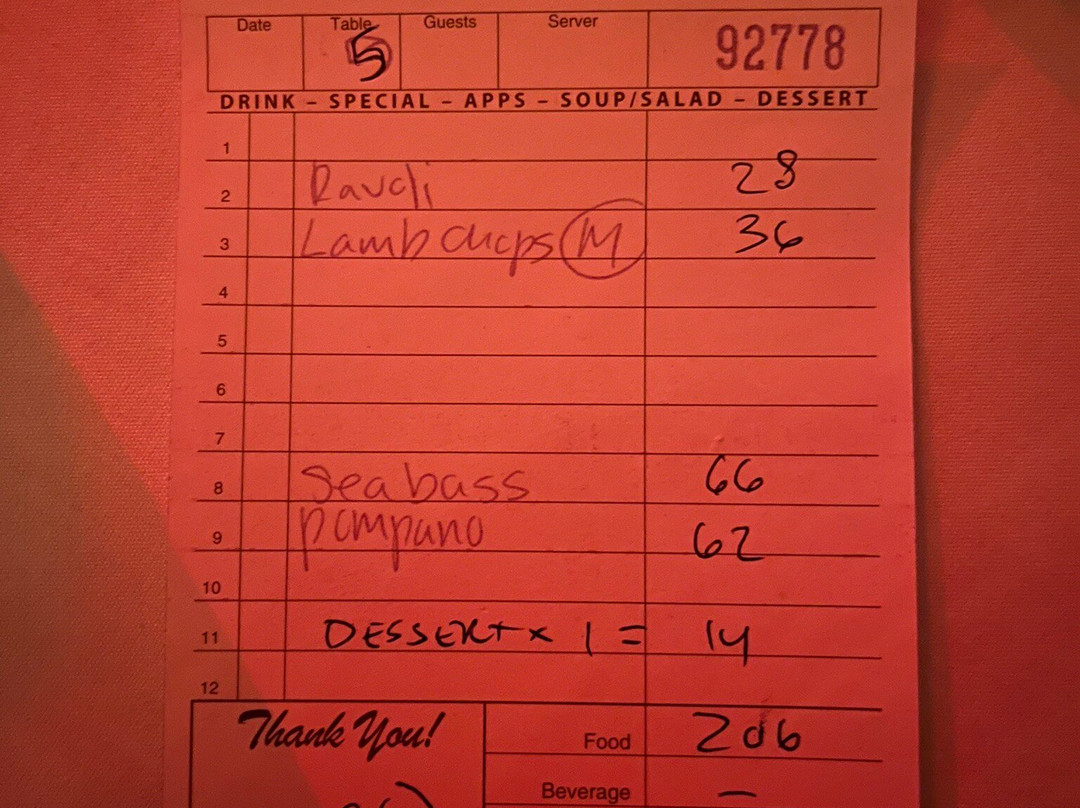 Date Table Guests Server
5 92778
DRINK – SPECIAL – APPS – SOUP/SALAD – DESSERT
1
2 Ravoli 28
3 Lamb Chops M 36
4
5
6
7
8 Sea bass 66
9 pompano 62
10
11 DESSERT x 1 = 14
12
Thank You! Food 206
Beverage –